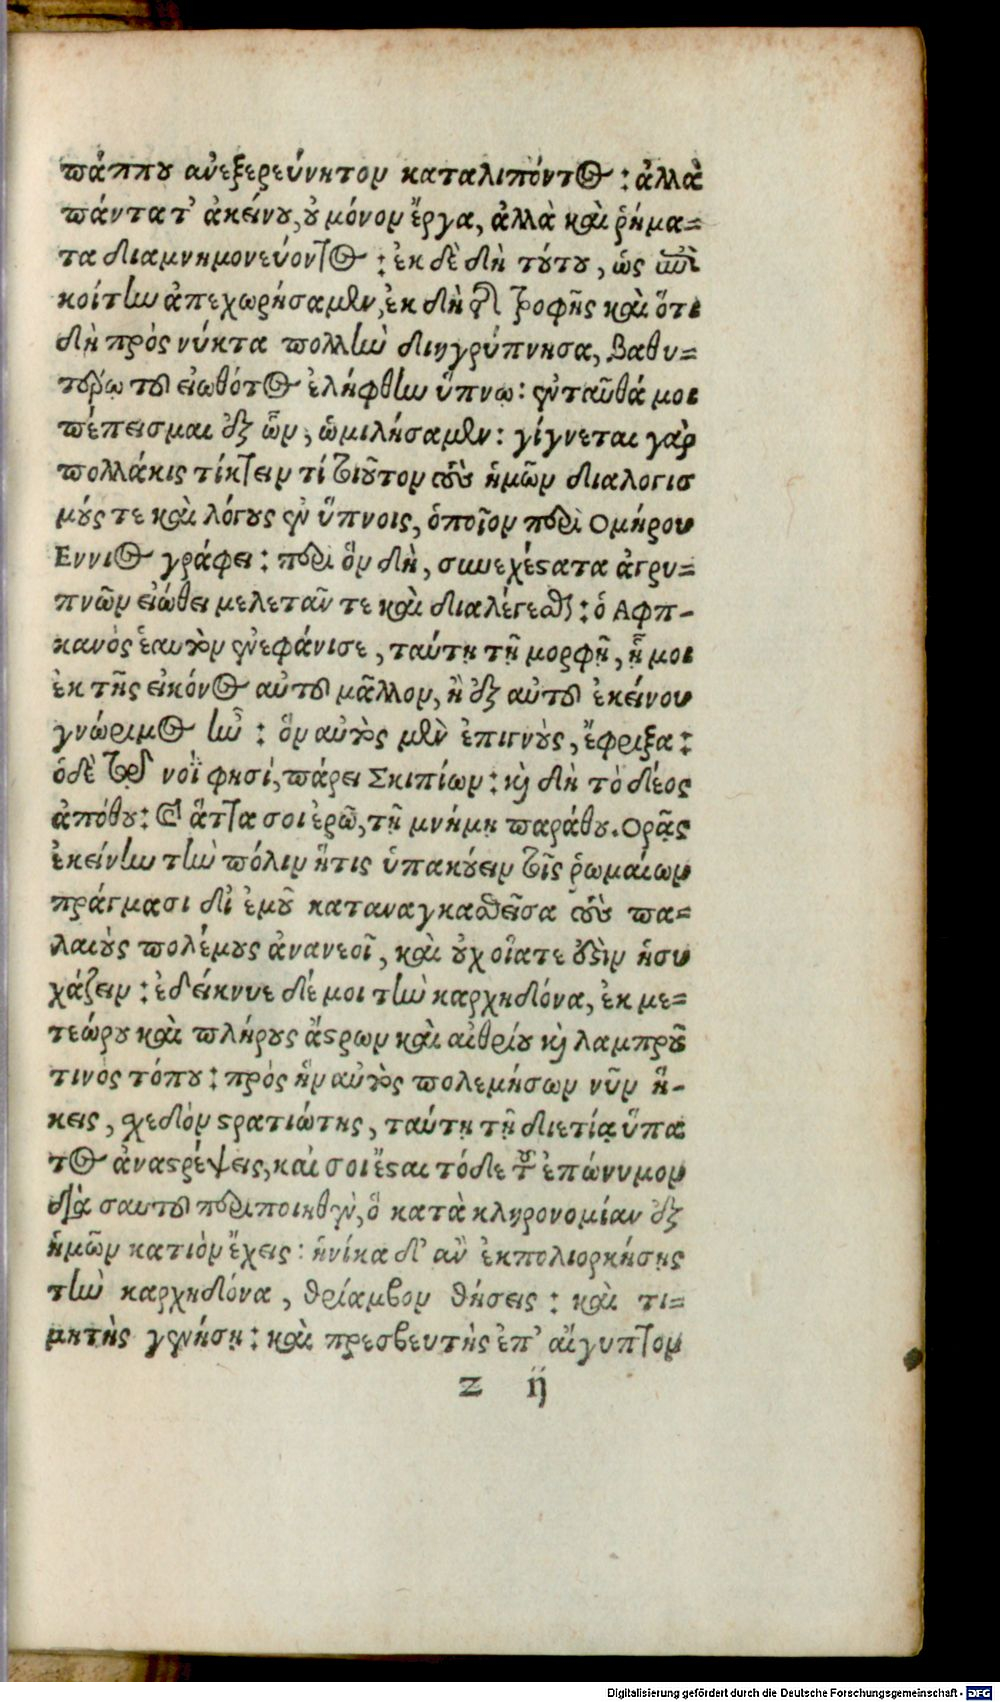 πάππου ἀνεξερεύνητον καταλιπόντος : ἀλλὰ
πάντα τ' ἀκείνου, οὐ μόνον ἔργα, ἀλλὰ καὶ ῥήμα=
τα διαμνημονεύοντος : ἐκ δὲ δὴ τούτου, ὡς ἐπὶ
κοίτην ἀπεχωρήσαμεν, ἐκ δὴ τῆς τροφῆς καὶ ὅτι
δὴ πρὸς νύκτα πολλὴν διηγρύπνησα, βαθυ=
τέρῳ τοῦ εἰωθότος ἐλήφθην ὕπνῳ : ἐνταῦθά μοι
πέπεισμαι ἐξ ὧν, ὡμιλήσαμεν : γίγνεται γὰρ
πολλάκις τίκτειν τί τοιοῦτον τοὺς ἡμῶν διαλογισ
μούς τε καὶ λόγους ἐν ὕπνοις, ὁποῖον περὶ Ομήρου
Εννιος γράφει : περὶ ὃν δὴ, συνεχέστατα ἀγρυ=
πνῶν εἰώθει μελετᾶν τε καὶ διαλέγεσθαι : ὁ Αφρι-
κανὸς ἑαυτὸν ἐνεφάνισε, ταύτῃ τῇ μορφῇ, ᾗ μοι
ἐκ τῆς εἰκόνος αὐτοῦ μᾶλλον, ἢ ἐξ αὐτοῦ ἐκείνου
γνώριμος ἦν : ὃν αὐτὸς μὲν ἐπιγνοὺς, ἔφριξα :
ὁ δὲ νοῒ φησί, πάρει Σκιπίων : καὶ δὴ τὸ δέος
ἀπόθου : καὶ ἅττα σοι ἐρῶ, τῇ μνήμῃ παράθου. Ορᾷς
ἐκείνην τὴν πόλιν ἥτις ὑπακούειν τοῖς ῥωμαίων
πράγμασι δι' ἐμοῦ καταναγκασθεῖσα τοὺς πα=
λαιοὺς πολέμους ἀνανεοῖ, καὶ οὐχ οἵα τε οὖσα ἡσυ
χάζειν : ἐδείκνυε δέ μοι τὴν καρχηδόνα, ἐκ με=
τεώρου καὶ πλήρους ἄστρων καὶ αἰθρίου καὶ λαμπροῦ
τινὸς τόπου : πρὸς ἣν αὐτὸς πολεμήσων νῦν ἥ-
κεις, σχεδὸν στρατιώτης, ταύτῃ τῇ διετίᾳ ὕπα
τος ἀναστρέψεις, καί σοι ἔσται τόδε τοὐπώνυμον
διὰ σαυτοῦ περιποιηθὲν, ὃ κατὰ κληρονομίαν ἐξ
ἡμῶν κατιὸν ἔχεις : ἡνίκα δ' ἂν ἐκπολιορκήσῃς
τὴν καρχηδόνα, θρίαμβον θήσεις : καὶ τι=
μητὴς γενήσῃ : καὶ πρεσβευτὴς ἐπ' αἴγυπτον
z ij
Digitalisierung gefördert durch die Deutsche Forschungsgemeinschaft - DFG